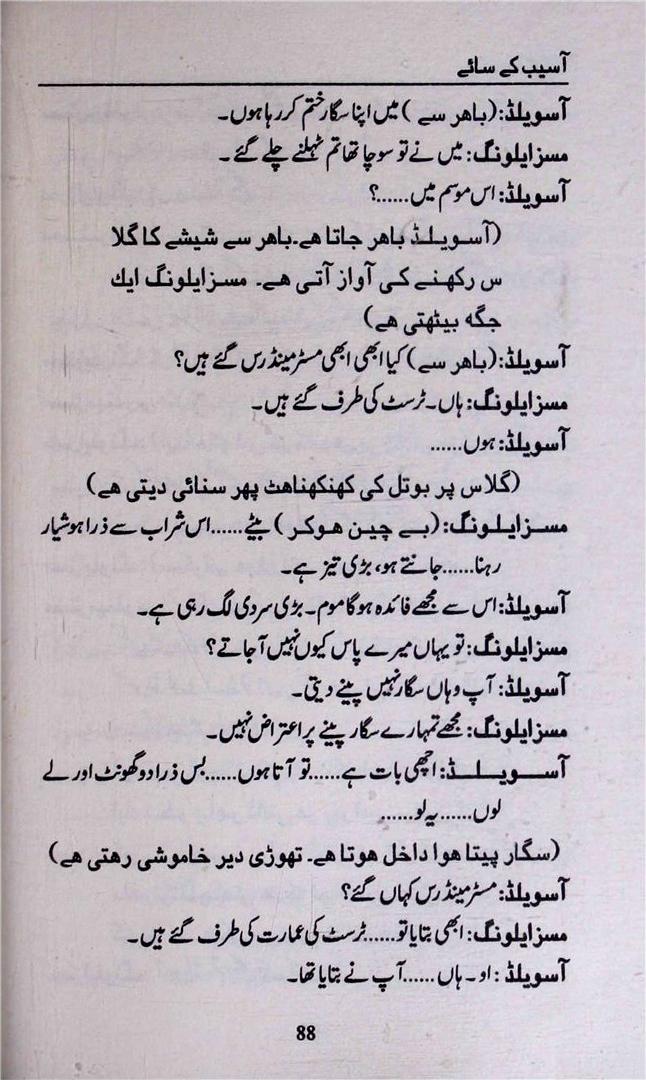 آسیب کے سائے
آسویلڈ: (باهر سے) میں اپنا سگار ختم کر رہا ہوں۔
مسز ایلونگ: میں نے تو سوچا تھا تم ٹہلنے چلے گئے۔
آسویلڈ: اس موسم میں......؟
(آسویلڈ باهر جاتا هے۔ باهر سے شیشے کا گلا
س رکھنے کی آواز آتی هے۔ مسز ایلونگ ایك
جگه بیٹھتی هے)
آسویلڈ: (باهر سے) کیا ابھی ابھی مسٹر مینڈرس گئے ہیں؟
مسز ایلونگ: ہاں۔ ٹرسٹ کی طرف گئے ہیں۔
آسویلڈ: ہوں......
(گلاس پر بوتل کی کھنکھناهٹ پھر سنائی دیتی هے)
مسز ایلونگ: (بے چین هوکر) بیٹے......اس شراب سے ذرا ہوشیار
رہنا......جانتے ہو، بڑی تیز ہے۔
آسویلڈ: اس سے مجھے فائدہ ہوگا موم۔ بڑی سردی لگ رہی ہے۔
مسز ایلونگ: تو یہاں میرے پاس کیوں نہیں آجاتے؟
آسویلڈ: آپ وہاں سگار نہیں پینے دیتی۔
مسز ایلونگ: مجھے تمہارے سگار پینے پر اعتراض نہیں۔
آسویلڈ: اچھی بات ہے......تو آتا ہوں......بس ذرا دو گھونٹ اور لے
لوں......یہ لو......
(سگار پیتا هوا داخل هوتا هے۔ تھوڑی دیر خاموشی رهتی هے)
آسویلڈ: مسٹر مینڈرس کہاں گئے؟
مسز ایلونگ: ابھی بتایا تو......ٹرسٹ کی عمارت کی طرف گئے ہیں۔
آسویلڈ: او۔ ہاں......آپ نے بتایا تھا۔
88